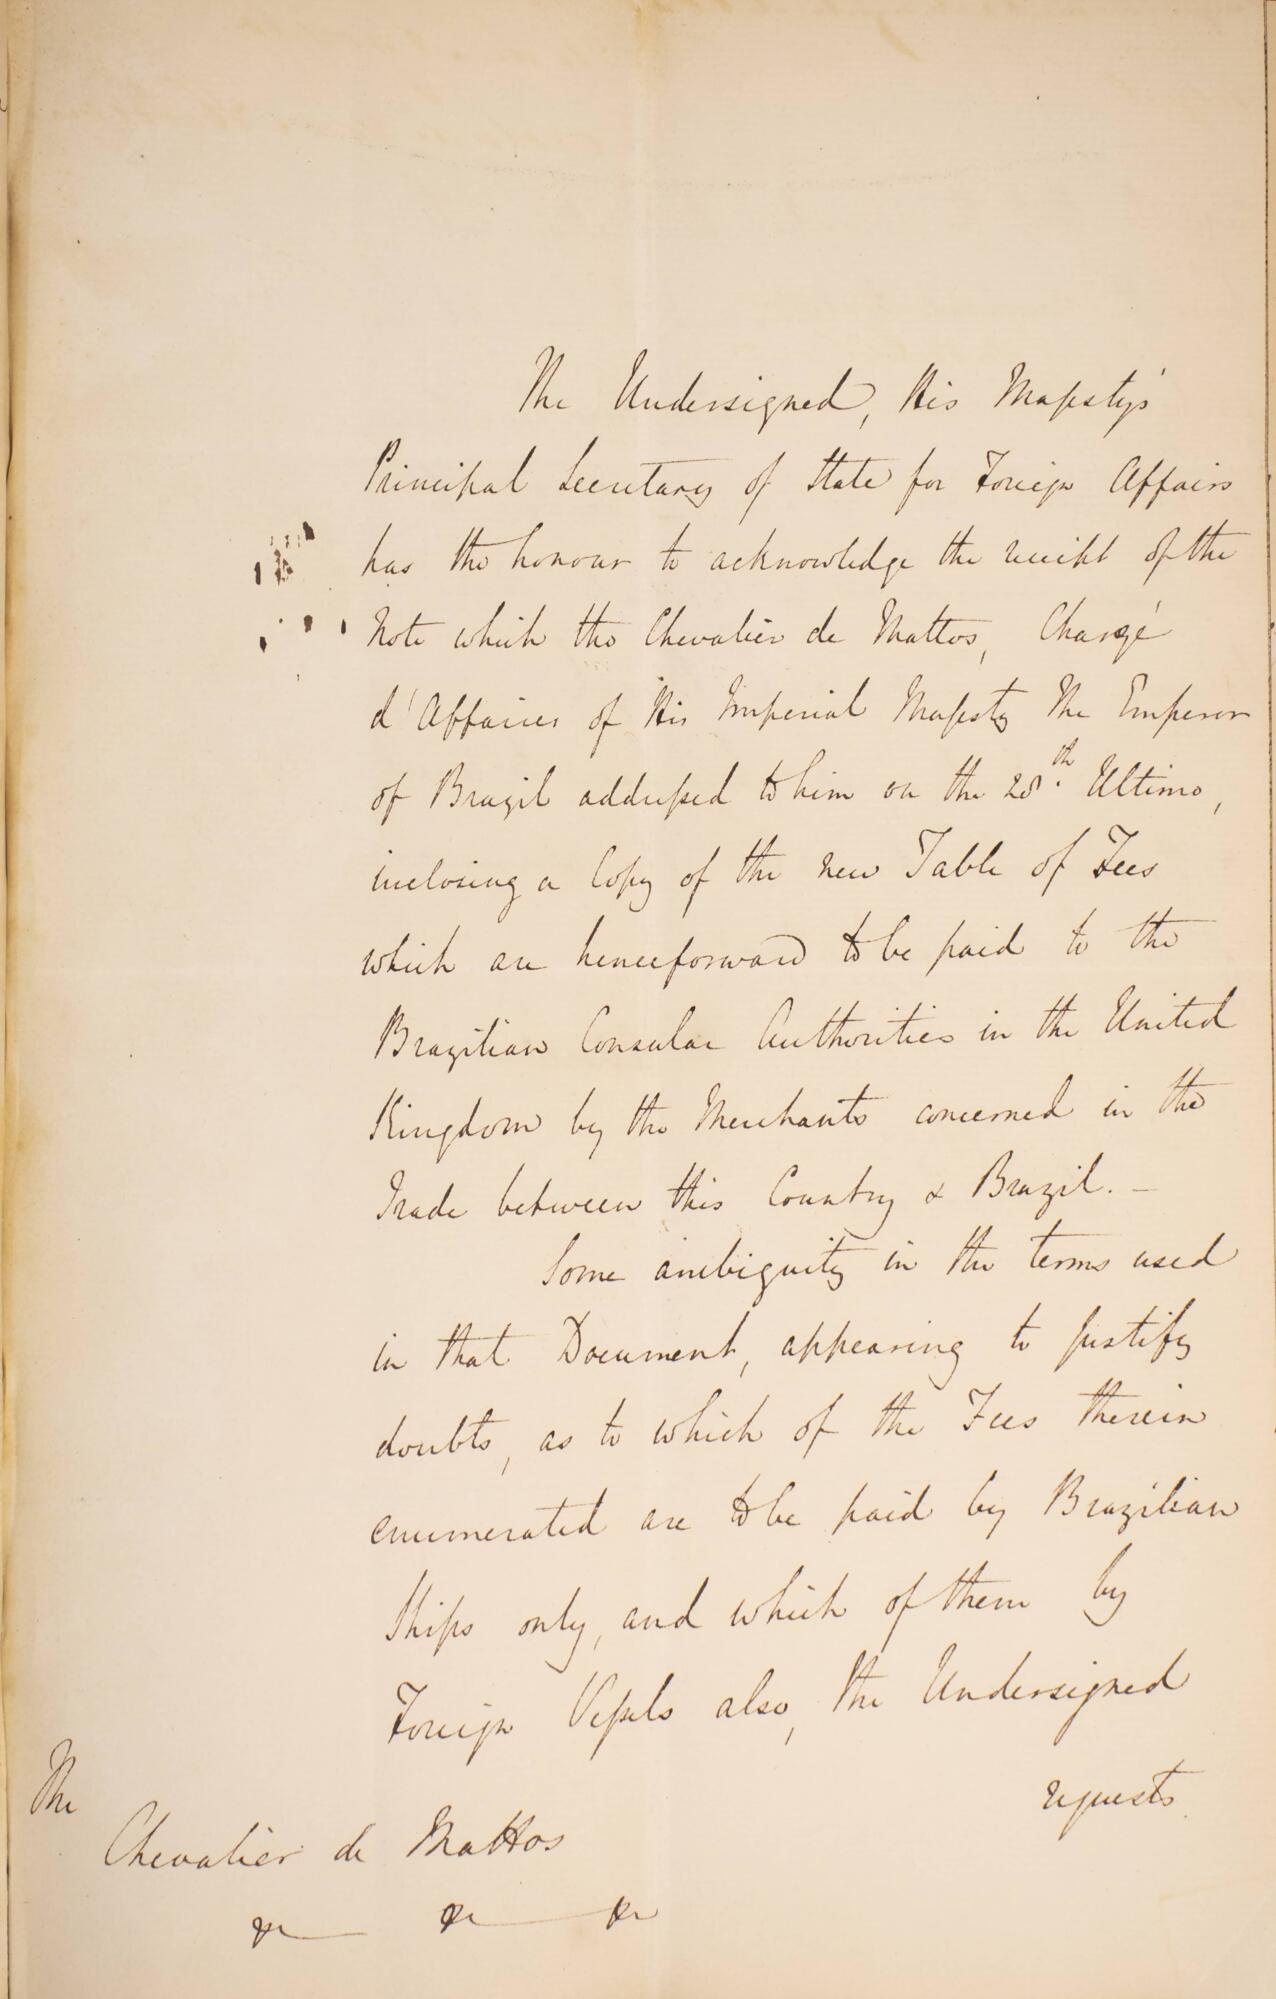 The Undersigned, His Majesty's
Principal Secretary of State for Foreign Affairs
has the honour to acknowledge the receipt of the
Note which the Chevalier de Mattos, Chargé
d'Affaires of His Imperial Majesty The Emperor
of Brazil addressed to him on the 28th Ultimo,
inclosing a Copy of the new Table of Fees
which are henceforward to be paid to the
Brazilian Consular Authorities in the United
Kingdom by the Merchants concerned in the
Trade between this Country & Brazil. –
Some ambiguity in the terms used
in that Document, appearing to justify
doubts, as to which of the Fees therein
enumerated are to be paid by Brazilian
Ships only, and which of them by
Foreign Vessels also, the Undersigned
requests
The
Chevalier de Mattos
&c &c &c